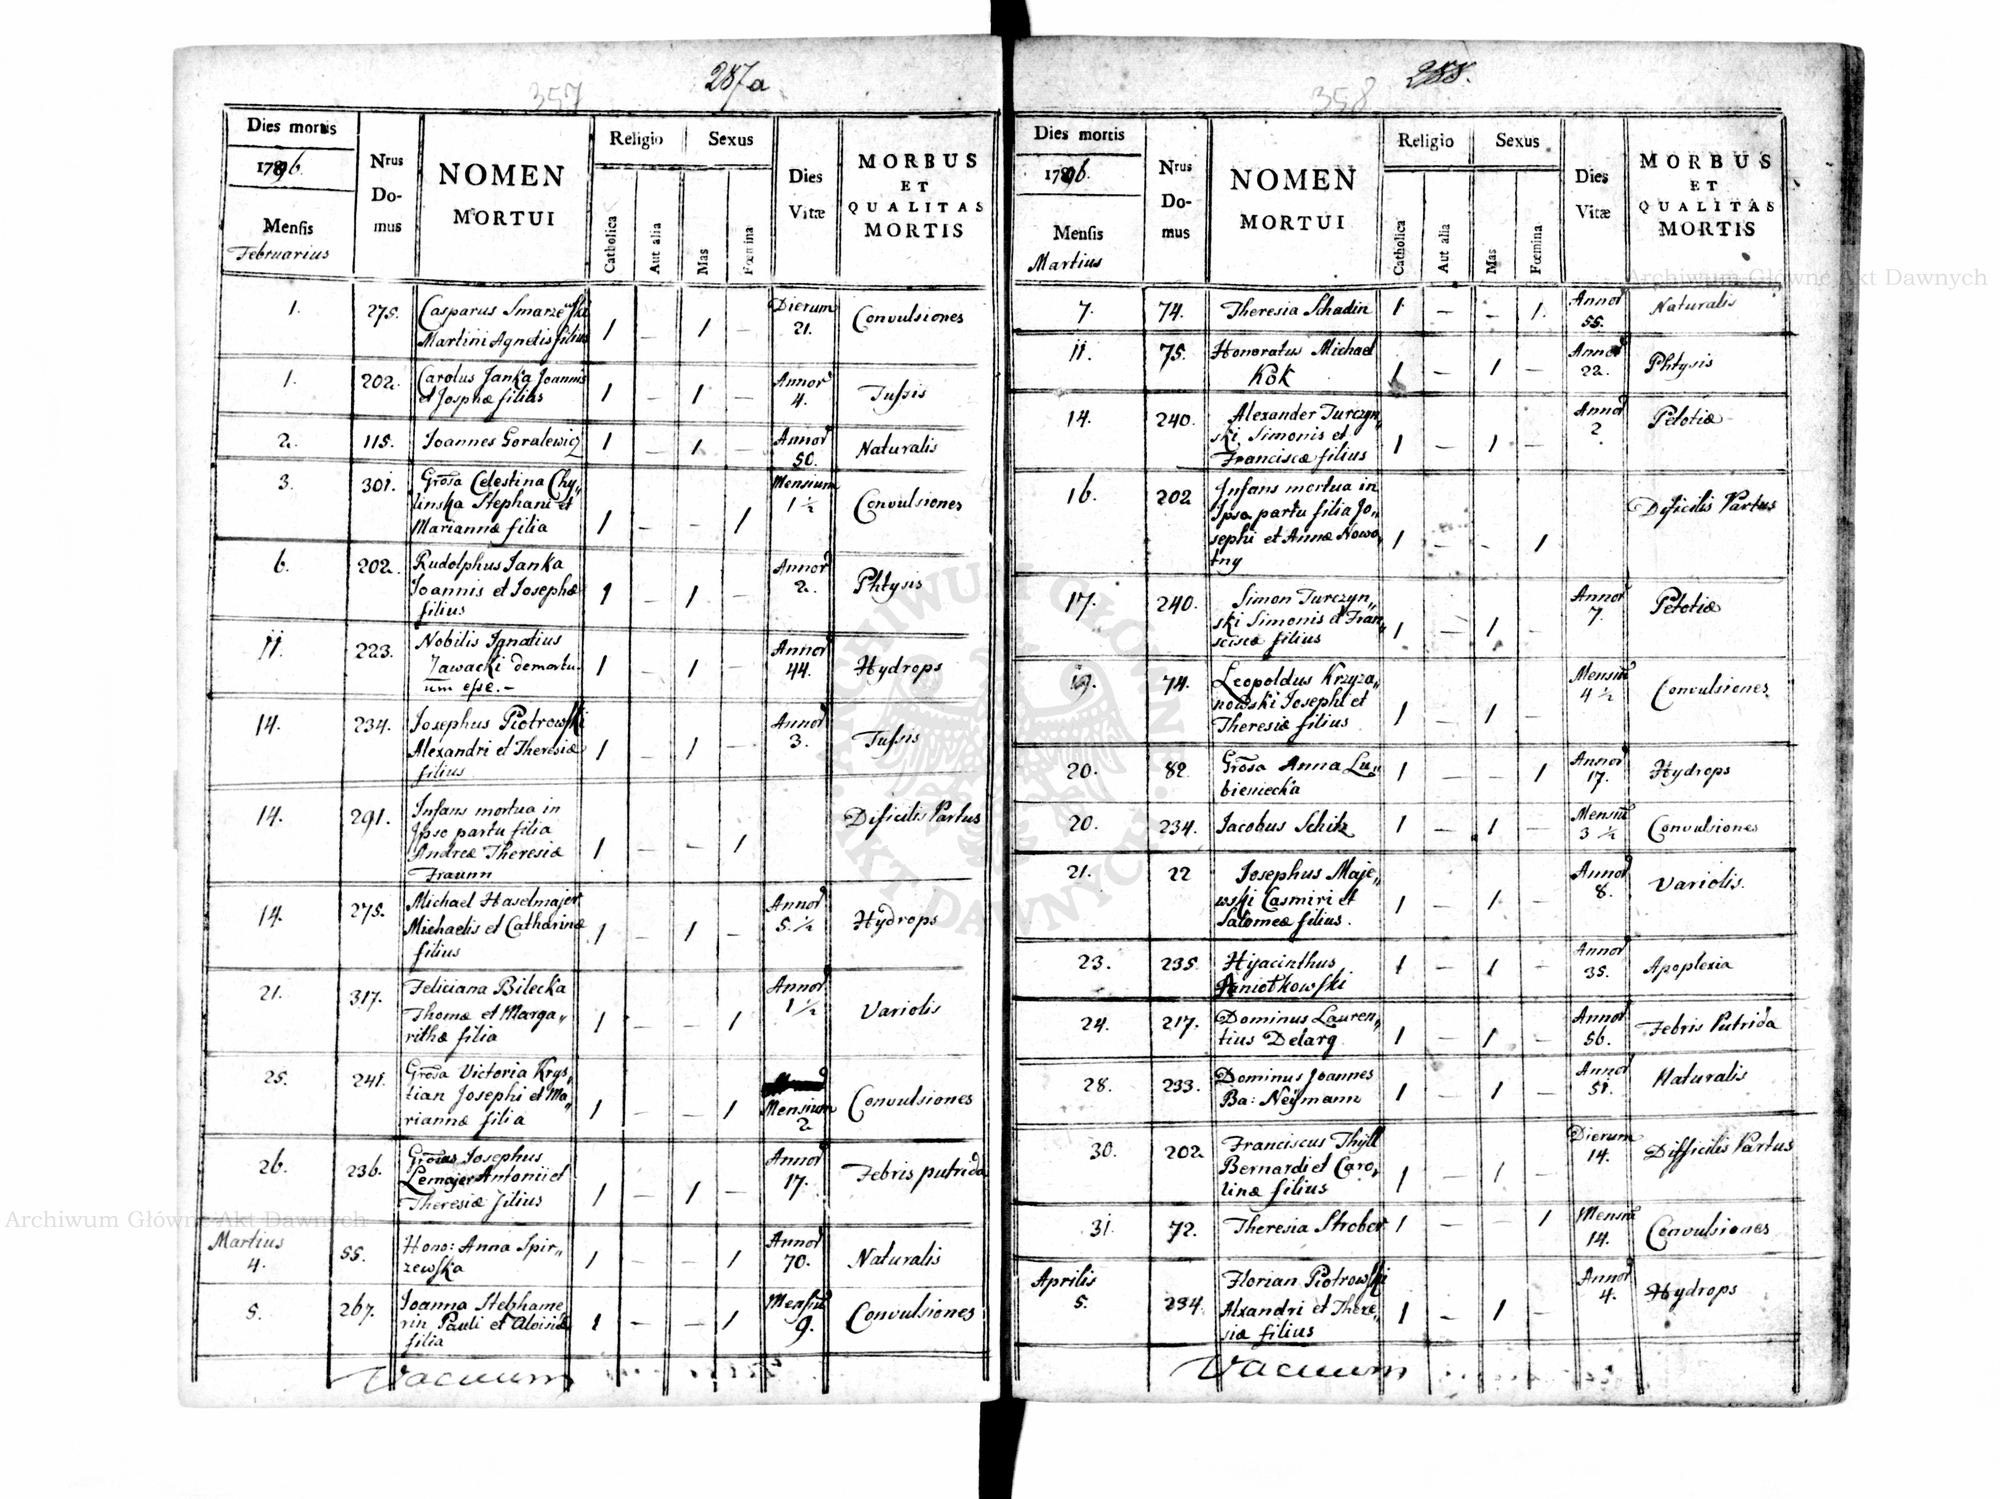 287a
357
Dies mortis
1796.
Mensis
Februarius
Nrus
Do-
mus
NOMEN
MORTUI
Religio
Sexus
Catholica
Aut alia
Mas
Fœmina
Dies
Vitæ
MORBUS
ET
QUALITAS
MORTIS
1. 275. Casparus Smarzewski Dierum
Martini Agnetis filius 1 — 1 — 21. Convulsiones
1. 202. Carolus Janka Joannis Annor
et Josphæ filius 1 — 1 — 4. Tussis
2. 115. Joannes Goralewicz 1 — 1 — Annor Naturalis
50.
3. 301. Grosa Celestina Chy„ Mensium
linska Stephani et 1 ½ Convulsiones
Mariannæ filia 1 1
6. 202. Rudolphus Janka Annor
Joannis et Josephæ 1 — 1 — 2. Phtysis
filius
11. 223. Nobilis Ignatius Annor
Zawacki demortu„ 1 — 1 — 44. Hydrops
um esse. —
14. 234. Josephus Piotrowski Annor
Alexandri et Theresiæ 1 — 1 — 3. Tussis
filius
14. 291. Infans mortua in Dificilis Partus
Ipso partu filia
Andreæ Theresiæ 1 — — 1
Fraunn
14. 275. Michael Haselmajer Annor
Michaelis et Catharinæ 1 — 1 — 5. ½ Hydrops
filius
21. 317. Feliciana Bilecka Annor
Thomæ et Marga„ 1 ½ Variolis
rithæ filia 1 — — 1
25. 241. Grosa Victoria Krys„
tian Josephi et Ma„ Mensium Convulsiones
riannæ filia 1 — — 1 2
26. 236. Grosus Josephus Annor
Lemajer Antonii et 17. Febris putrida
Theresiæ filius 1 — 1 —
Martius
4. 55. Hono: Anna Spir„ Annor
zewska 1 — — 1 70. Naturalis
5. 267. Joanna Stebhame Mensiu
rin Pauli et Aloisiæ 1 — — 1 9. Convulsiones
filia
Vacuum
288.
358
Dies mortis
1796.
Mensis
Martius
Nrus
Do-
mus
NOMEN
MORTUI
Religio
Sexus
Catholica
Aut alia
Mas
Fœmina
Dies
Vitæ
MORBUS
ET
QUALITAS
MORTIS
7. 74. Theresia Schadin 1 — — 1. Annor Naturalis
55.
11. 75. Honoratus Michael Annor
Kok 1 — 1 — 22. Phtysis
14. 240. Alexander Turczyn„ Annor Petotiæ
ski Simonis et 1 — 1 — 2
Franciscæ filius
16. 202 Infans mortua in
Ipso partu filia Jo„ Dificilis Partus
sephi et Annæ Nowo„ 1 — — 1
tny
17. 240. Simon Turczyn„ Annor Petotiæ
ski Simonis et Fran„ 1 — 1 — 7.
sciscæ filius
19. 74. Leopoldus Krzyza„ Mensiu
nowski Josephi et 1 — 1 — 4 ½ Convulsiones
Theresiæ filius
20. 82. Grosa Anna Lu„ 1 — — 1 Annor Hydrops
bieniecka 17.
20. 234. Jacobus Schitz 1 — 1 — Mensiu Convulsiones
3 ½
21. 22 Josephus Maje„ Annor
wski Casmiri et 1 — 1 — 8. Variolis.
Salomeæ filius.
23. 235. Hijacinthus 1 — 1 — Annor Apoplexia
35.
24. 217. Dominus Lauren„ Annor
tius Delarg 1 — 1 — 56. Febris Putrida
28. 233. Dominus Joannes Annor
Ba: Neÿmann 1 — 1 — 51. Naturalis
30. 202 Franciscus Thyll Dierum
Bernardi et Caro„ 14. Difficilis Partus
linæ filius 1 — 1 —
31. 72. Theresia Strober 1 — — 1 Mensiu Convulsiones
14.
Aprilis
5. 234. Florian Piotrowski Annor
Alxandri et There„ 1 — 1 — 4. Hydrops
siæ filius
Vacuum
Archiwum Główne Akt Dawnych
Archiwum Główne Akt Dawnych
ARCHIWUM GŁÓWNE AKT DAWNYCH